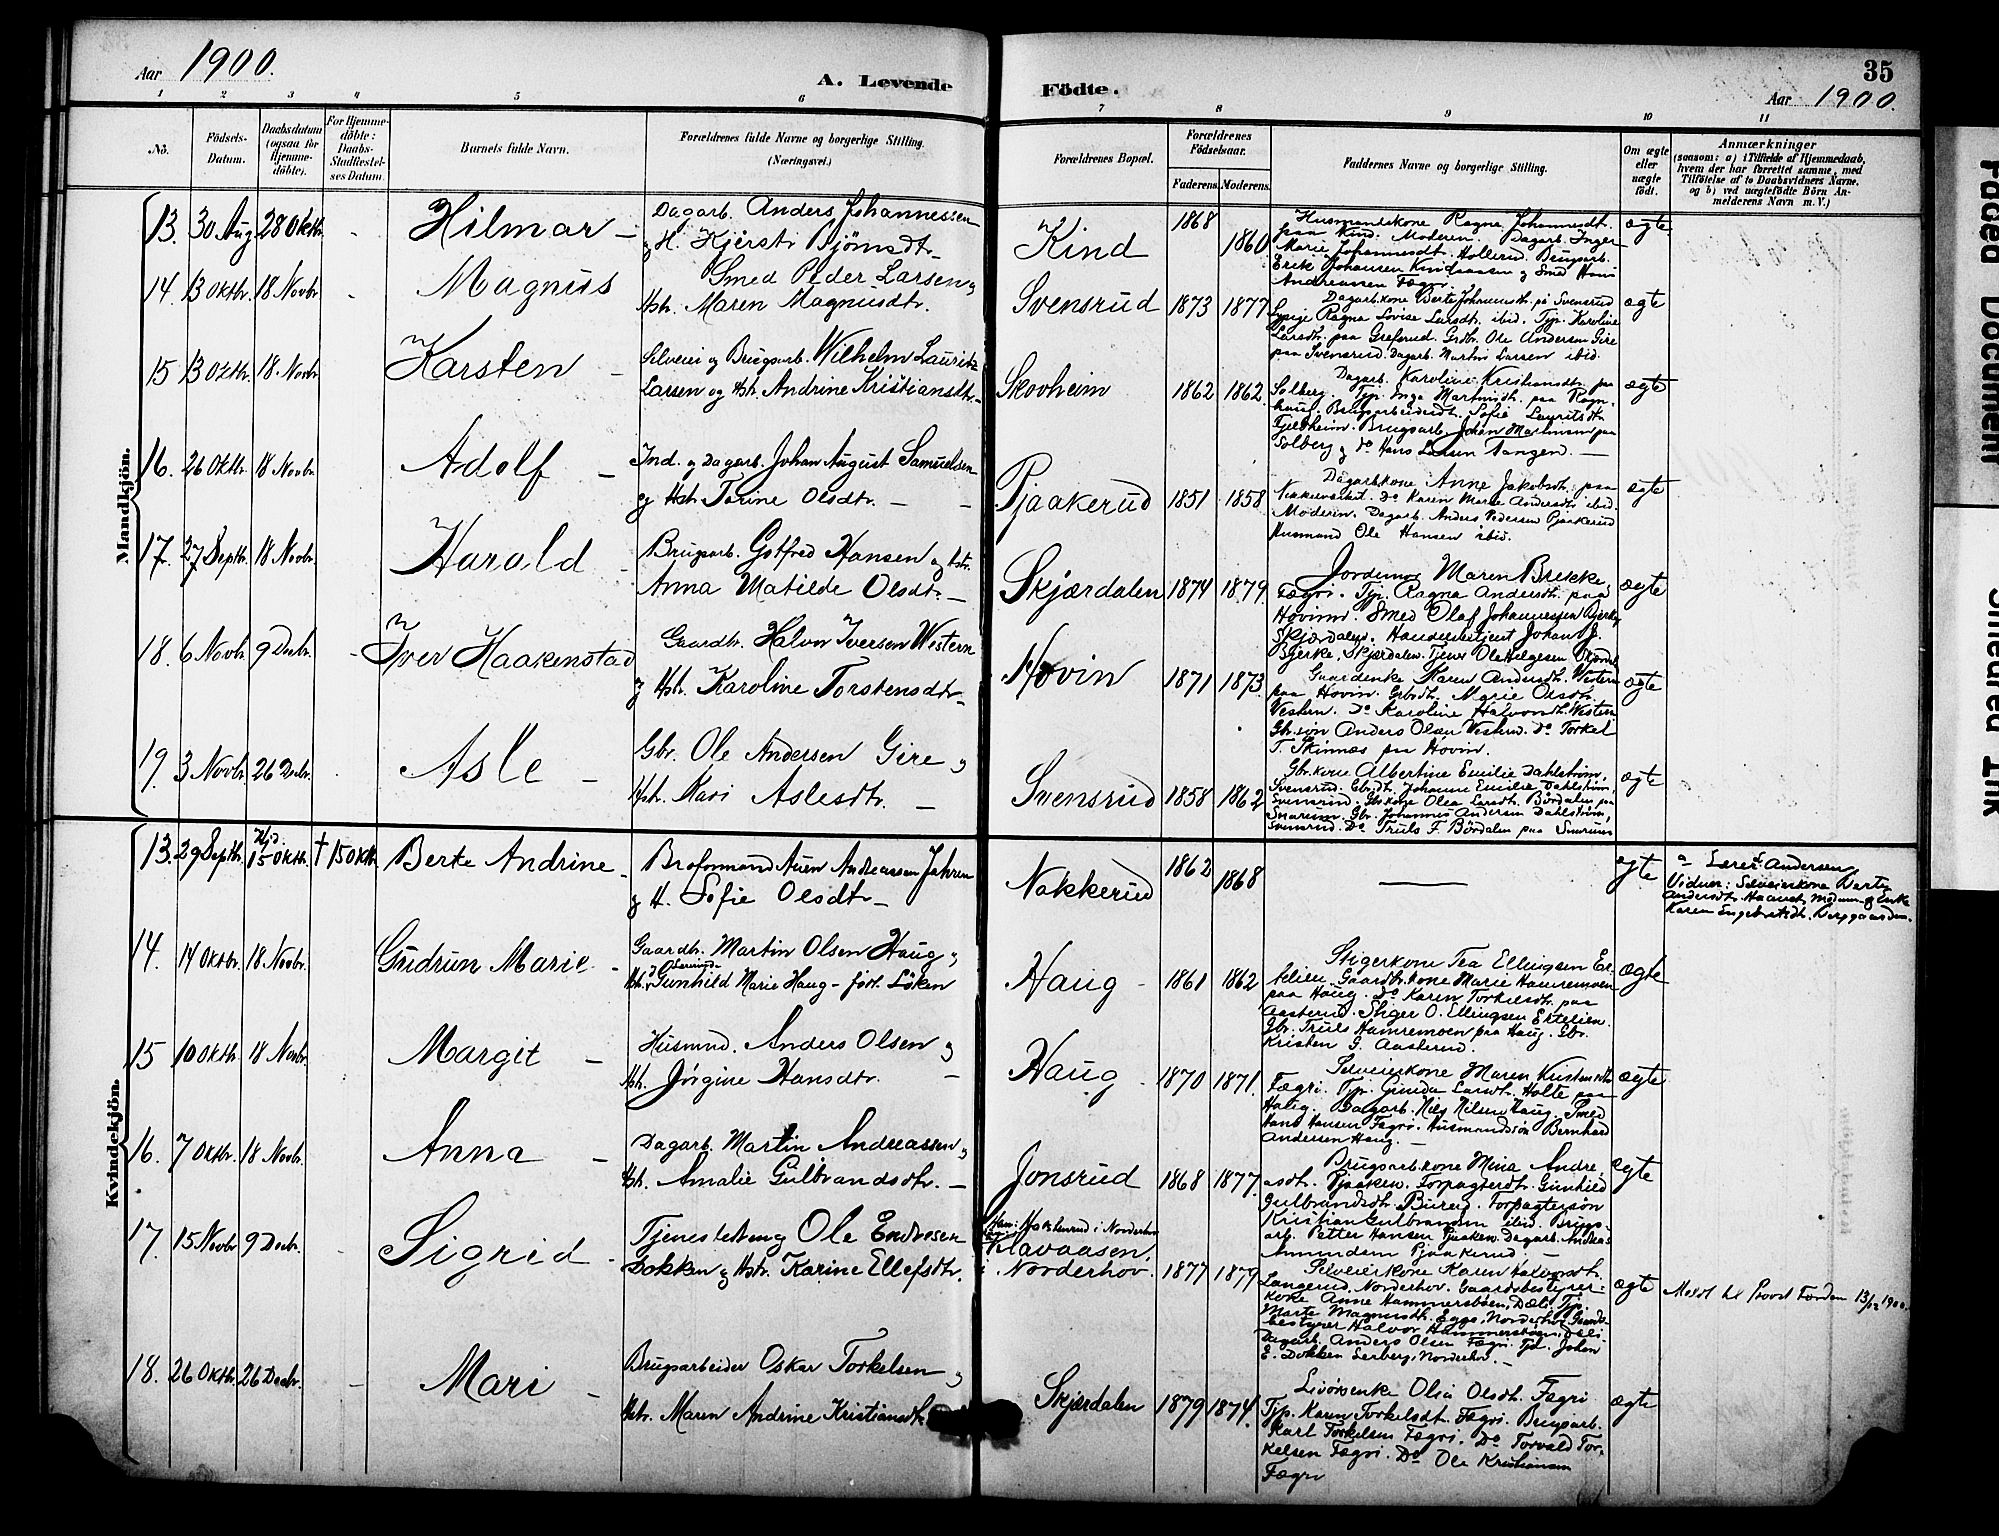 Aar 1900.
A. Levende Födte.
35
Aar 1900.
1 2 3 4 5 6 7 8 9 10 11
No.
Födsels-Datum.
Daabsdatum (ogsaa for Hjemme-döbte).
For Hjemme-döbte: Daabs-Stadfæstel-ses Datum.
Barnets fulde Navn.
Forældrenes fulde Navne og borgerlige Stilling. (Næringsvei.)
Forældrenes Bopæl.
Forældrenes Födselsaar.
Faderens. Moderens.
Faddernes Navne og borgerlige Stilling.
Om ægte eller uægte födt.
Anmærkninger
(saasom: a) i Tilfælde af Hjemmedaab, hvem der har forrettet samme, med Tilföielse af to Daabsvidners Navne, og b) ved uægtefödte Börn An-melderens Navn m. V.)
Mandkjön.
13. 30 Aug 28 Oktbr. - Hilmar -
Dagarb. Anders Johannessen
og H. Kjersti Björnsdtr.
Kind 1868 1860
Husmandskone Ragna Johannesdt.
paa Kind. Moderen. Dagarb. Inger
Marie Johannesdt. Hollerud. Brugsarb.
Erik Johansen Kindsaasen og Smed Hans
Andreassen Fægri.
ægte
14. 13 Oktbr. 18 Novbr. - Magnus
Smed Peder Larsen og
Hstr. Maren Magnusdtr.
Svensrud 1873 1877
Dagarb.kone Berte Johannesdtr. på Svensrud
Pige Ragna Lovise Larsdt. ibid. Tjp. Karoline
Larsdt. paa Græsrud. Grdbr. Ole Andersen Gire
paa Svensrud. Dagarb. Martin Larsen ibid.
ægte
15 13 Oktbr. 18 Novbr. Karsten -
Selveier og Brugsarb. Wilhelm Lauritz
Larsen og Hstr. Andrine Kristiansdtr.
Skovheim 1862 1862
Dagarb. Karoline Kristiansdt. paa
Solberg. Tjp. Inga Martinsdt. paa Rogn-
haug. Brugsarbeiderdt. Sofie Lauritsdt.
Fjeldheim. Brugsarb. Johan Martinsen paa
Solberg og Do Hans Larsen Tangen. -
ægte
16. 26 Oktbr. 18 Novbr. Adolf -
Ind. og Dagarb. Johan August Samuelsen
og Hstr. Torine Olsdtr. -
Pjaakerud 1851 1858
Dagarb.kone Anne Jakobsdt. paa
Do Karen Marie Andersdt. ibid.
Moderen. Dagarb. Anders Pedersen Pjaakerud
Husmand Ole Hansen ibid.
ægte
17. 27 Septbr. 18 Novbr. Harald -
Brugsarb. Gotfred Hansen og Hstr.
Anna Matilde Olsdtr. -
Skjærdalen 1874 1879.
Jordemor Maren Brekke,
Fægri. Tjp. Ragna Andersdt. paa
Hovinn. Smed Olaf Johannessen Bjerke,
Skjærdalen. Handelsbetjent Johan J.
Bjerke, Skjærdalen. Tjener Ole Helgesen
ægte
18. 6 Novbr. 9 Decbr. - Iver Haakenstad
Gaardbr. Halvor Iversen Western
og Hstr. Karoline Torstensdtr.
Hovin 1871 1873
Gaardenke Karen Andersdt. Western
paa Hovin. Grbrdt. Marie Olsdt.
Western. Do Karoline Halvorsdt. Western
Gbr.søn Anders Olsen Western. Do Torkel
T. Skinnæs paa Hovin.
ægte
19. 3 Novbr. 26 Decbr. Asle -
Gbr. Ole Andersen Gire og
Hstr. Kari Aslesdtr. -
Svensrud 1858 1862
Gbr.kone Albertine Emilie Dahlström,
Svensrud. Gbrdt. Johanne Emilie Dahlström,
Svensrud. Gbr.kone Olea Larsdt. Bördalen paa
Snarum. Gbr. Johannes Andersen Dahlström,
Svensrud. Do Truls F. Bördalen paa Snarum
ægte
Kvindekjön.
13. 29 Septbr. Hjd. 15 Oktbr. † 15 Oktbr. Berte Andrine -
Broformand Auen Andreassen Jahren
og H. Sofie Olsdtr -
Nakkerud 1862 1868
ægte
a- Lærer Andersen
Vidner: Selveierkone Berte
Andersdt. Haavet, Modum og Enke
Karen Engebretsdt. Berggaarden.
14. 14 Oktbr. 18 Novbr. Gudrun Marie -
Gaardbr. Martin Olsen Haug og
Hstr. Gunhild Marie Haug - født Löken
Haug - 1861 1862
Stigerkone Tea Ellingsen Er-
telien. Gaardbr.kone Marie Hamremoen
paa Haug. Do Karen Torkelsdt. paa
Aasterud. Stiger O. Ellingsen Ertelien.
Gbr. Truls Hamremoen paa Haug. Gbr.
Kristen G. Aasterud.
ægte
15 10 Oktbr. 18 Novbr. Margit -
Husmnd. Anders Olsen og
Hstr. Jörgine Hansdtr. -
Haug 1870 1871.
Selveierkone Maren Kristensdt.
Fægri. Tjp. Gunda Larsdt. Holte paa
Haug. Dagarb. Nils Nilsen Haug. Smed
Hans Hansen Fægri. Husmandssøn Bernhard
Andersen Haug. -
ægte
16. 7 Oktbr. 18 Novbr. Anna -
Dagarb. Martin Andreassen og
Hstr. Amalie Gulbrandsdtr. -
Jonsrud 1868 1877.
Brugsarb.kone Mina Andre-
asdt. Pjaaken. Forpagterdt. Gunhild
Gulbrandsdt. Burerd. Forpagtersøn
Kristian Gulbrandsen ibid. Brugs-
arb. Petter Hansen Pjaaken. Dagarb. Andreas
Amundsen Pjaakerud. -
ægte
17. 15 Novbr 9 Decbr. Sigrid -
Tjenestedreng Ole Endresen
Dokken og Hstr. Karine Ellefsdtr.
i Norderhov
i Norderhov. 1877 1879
Selveierkone Karen Halvorsdt.
Langerud, Norderhov. Gaardsbestyrer-
kone Anne Hammersbøen, Dæli. Tjp.
Marte Magnusdt. Egge, Norderhov. Gaards-
bestyrer Halvor Hammersbøen, Dæli.
Dagarb. Anders Olsen Fægri. Tjd. Johan
E. Dokken Lerberg, Norderhov. -
ægte
Meldt til Provst Færden 13/12 1900.
18. 26 Oktbr. 26 Decbr. - Mari -
Brugsarbeider Oskar Torkelsen og
Hstr. Maren Andrine Kristiansdt.
Skjærdalen 1879 1874.
Enke Olia Olsdt. Fægri
Tjp. Karen Torkelsdt. Fægri. Brugsarb.
Karl Torkelsen Fægri. Do Torvald Tor-
kelsen Fægri. Do Ole Kristiansen
Fægri
ægte